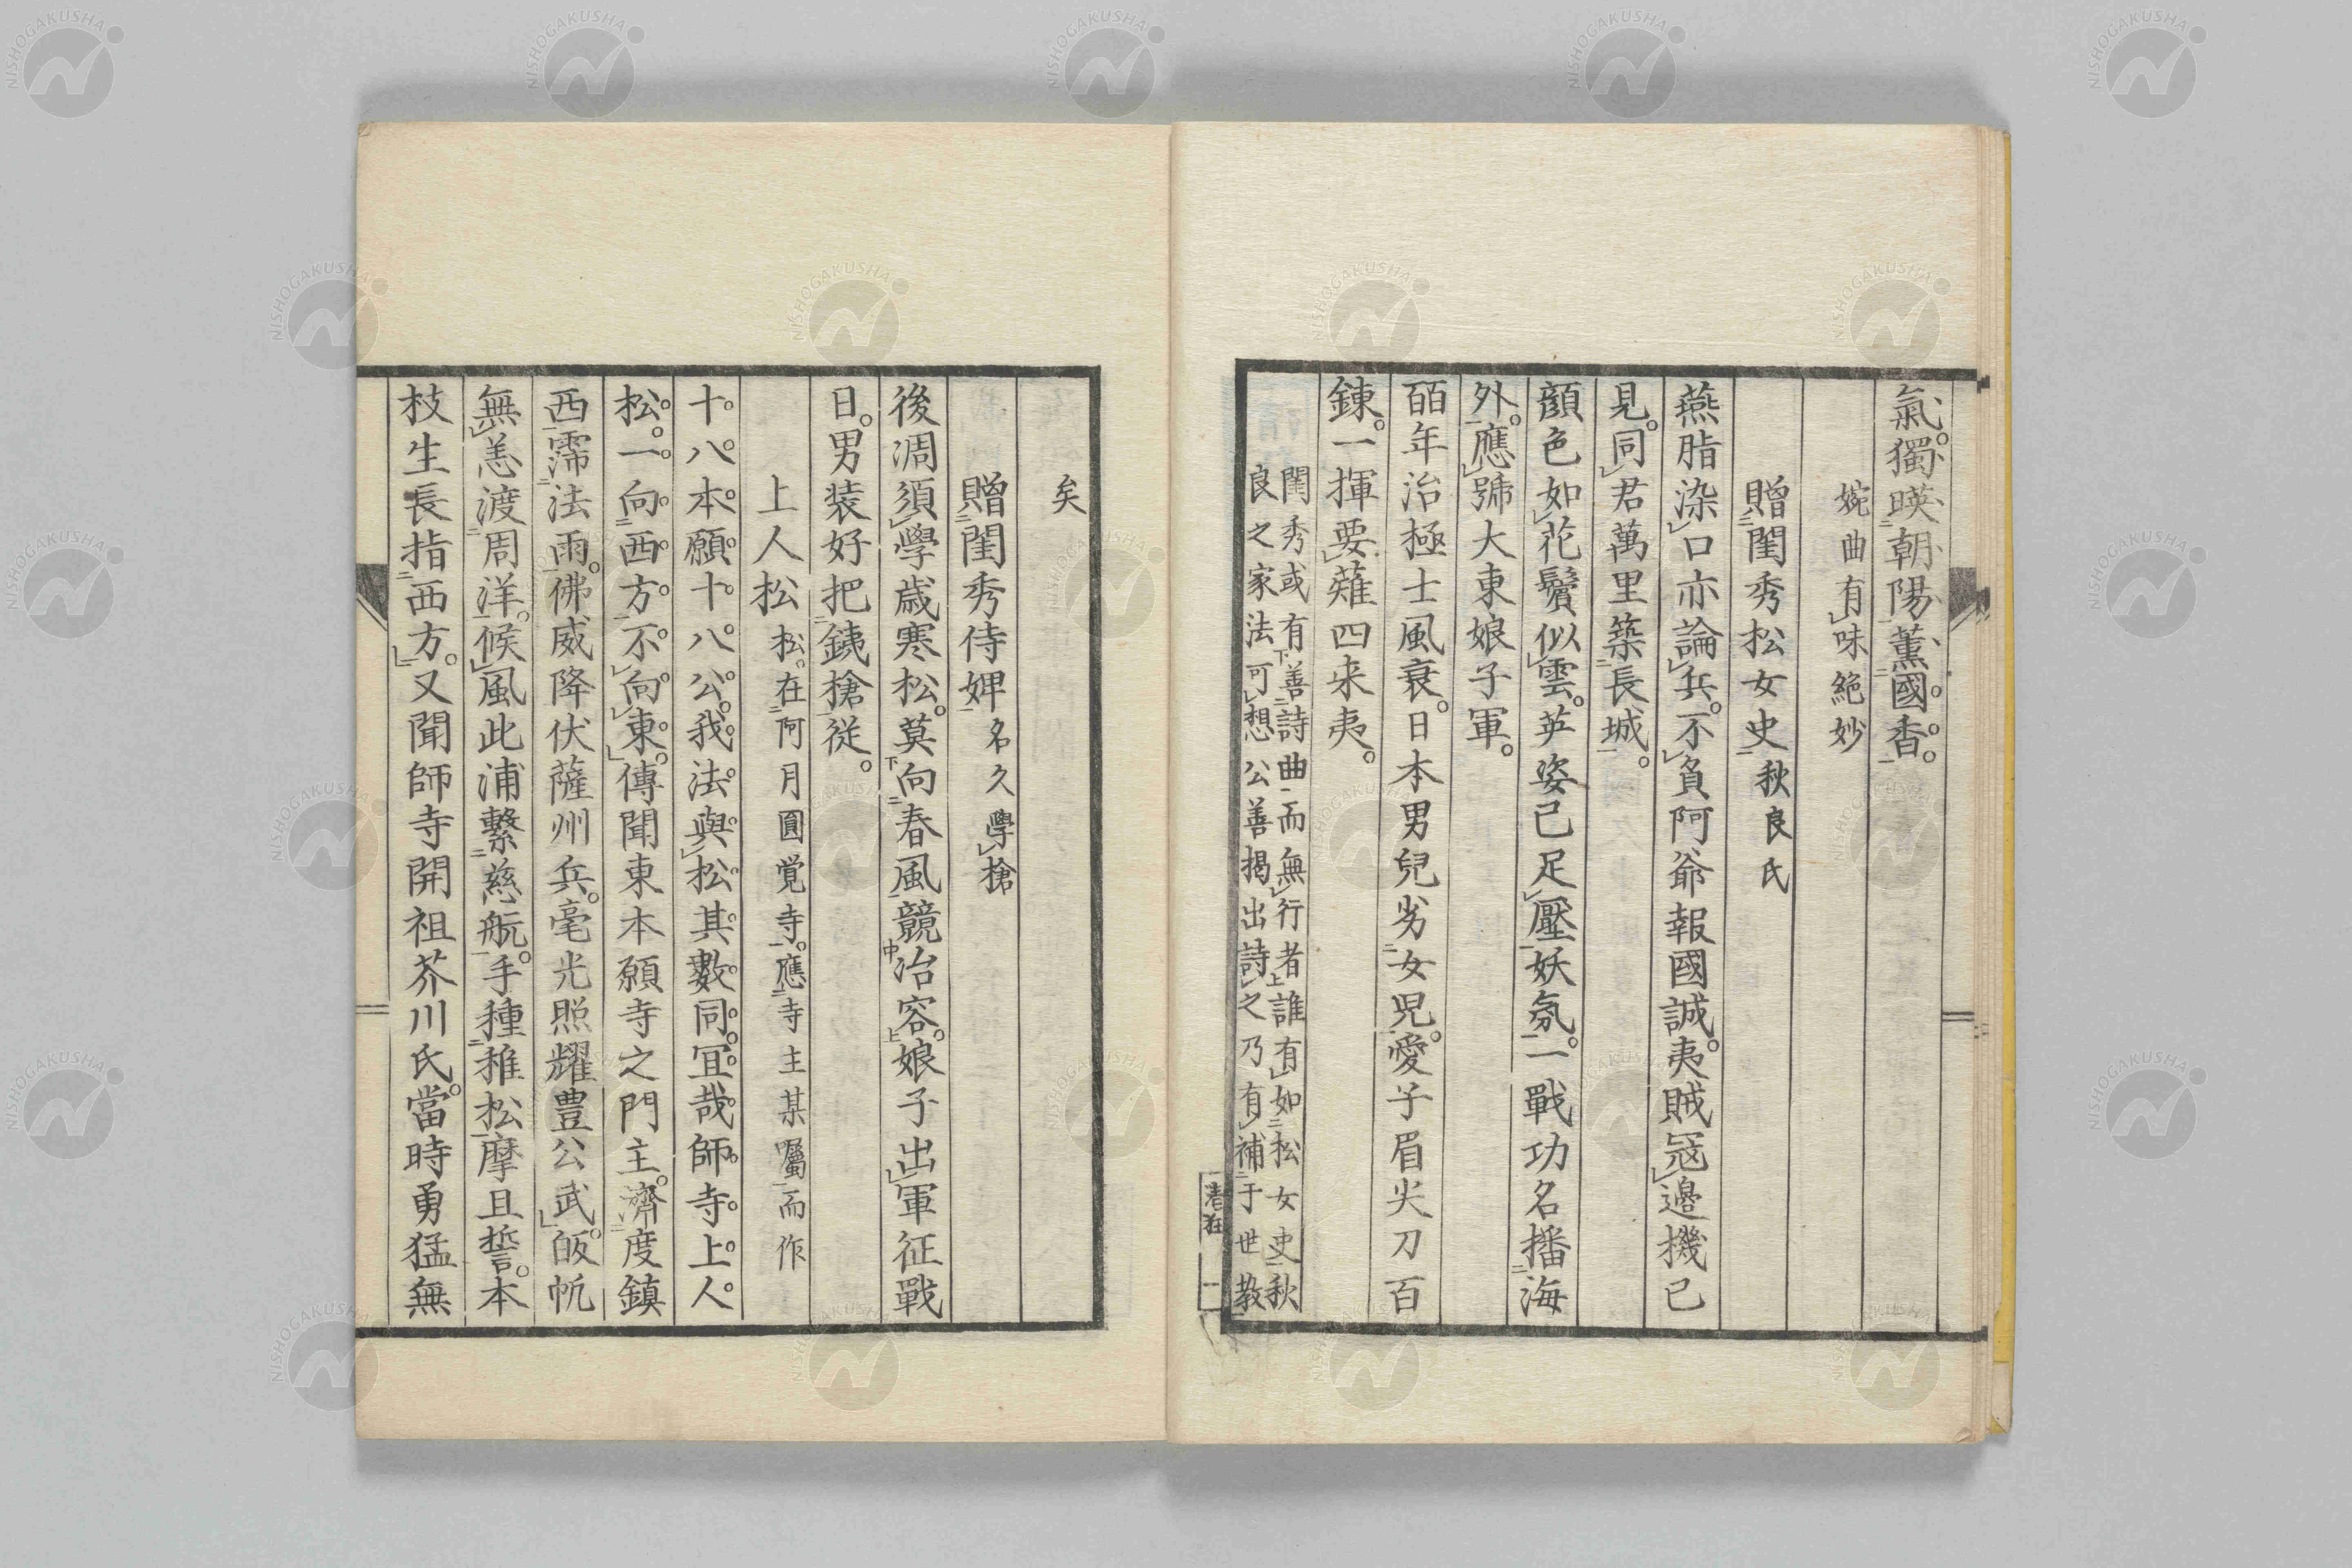 氣。獨暎朝陽薰國。香。
婉曲有味絶妙
贈閨秀松女史秋良氏
燕脂染口亦論兵。不負阿爺報國誠。夷賊冦邊機已
見。同君萬里築長城。
顔色如花鬢似雲。英姿已足壓妖氛。一戰功名播海
外。應號大東娘子軍。
皕年治極士風衰。日本男兒劣女児。愛子眉尖刀百
鍊。一揮要薙四来夷。
閨秀或有善詩曲而無行者誰有如松女史秋
良之家法可想公善揭出詩之乃有補于世教
一
矣
贈閨秀侍婢名久學槍
後凋須學歳寒松。莫向春風競冶容。娘子出軍征戰
日。男装好把銕槍從。
上人松松。在阿月圓覚寺。應寺主某囑而作
十八本願十八公。我法與松其數同。冝哉師寺上人
松。一向西方不向東。傳聞東本願寺之門主。濟度鎮
西霈法雨。佛威降伏薩州兵。毫光照耀豊公武。皈帆
無恙渡周洋。候風此浦繫慈航。手種稚松摩且誓。本
枝生長指西方。又聞師寺開祖芥川氏。當時勇猛無
NISHOGAKUSHA